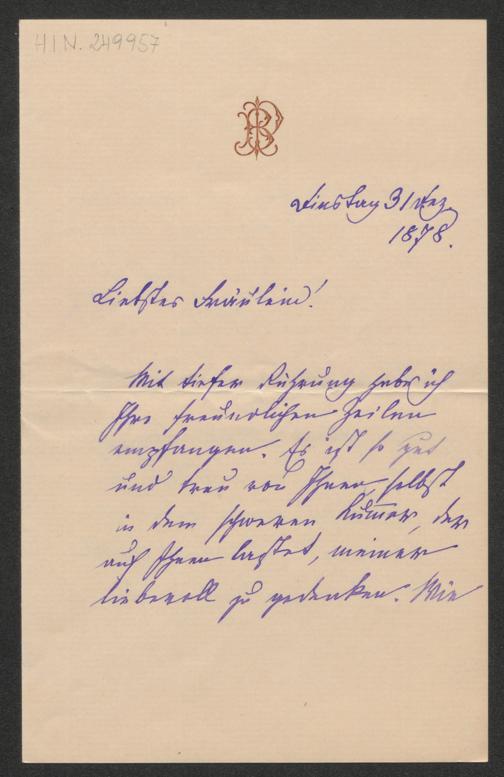 HIN. 249957
Dinstag 31 Dez.
1878.
Liebstes Fräulein!
Mit tiefer Rührung habe ich
Ihre freundlichen Zeilen
empfangen. Es ist so gut
und treu von Ihnen, selbst
in dem schweren Kum̅er, der
auf Ihnen lastet, meiner
liebevoll zu gedenken. Wie